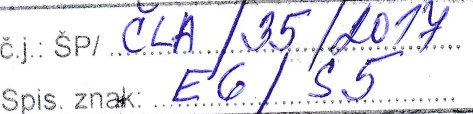 č.j.: ŠP/ ČLA/35/2017
Spis. znak: E6/S5